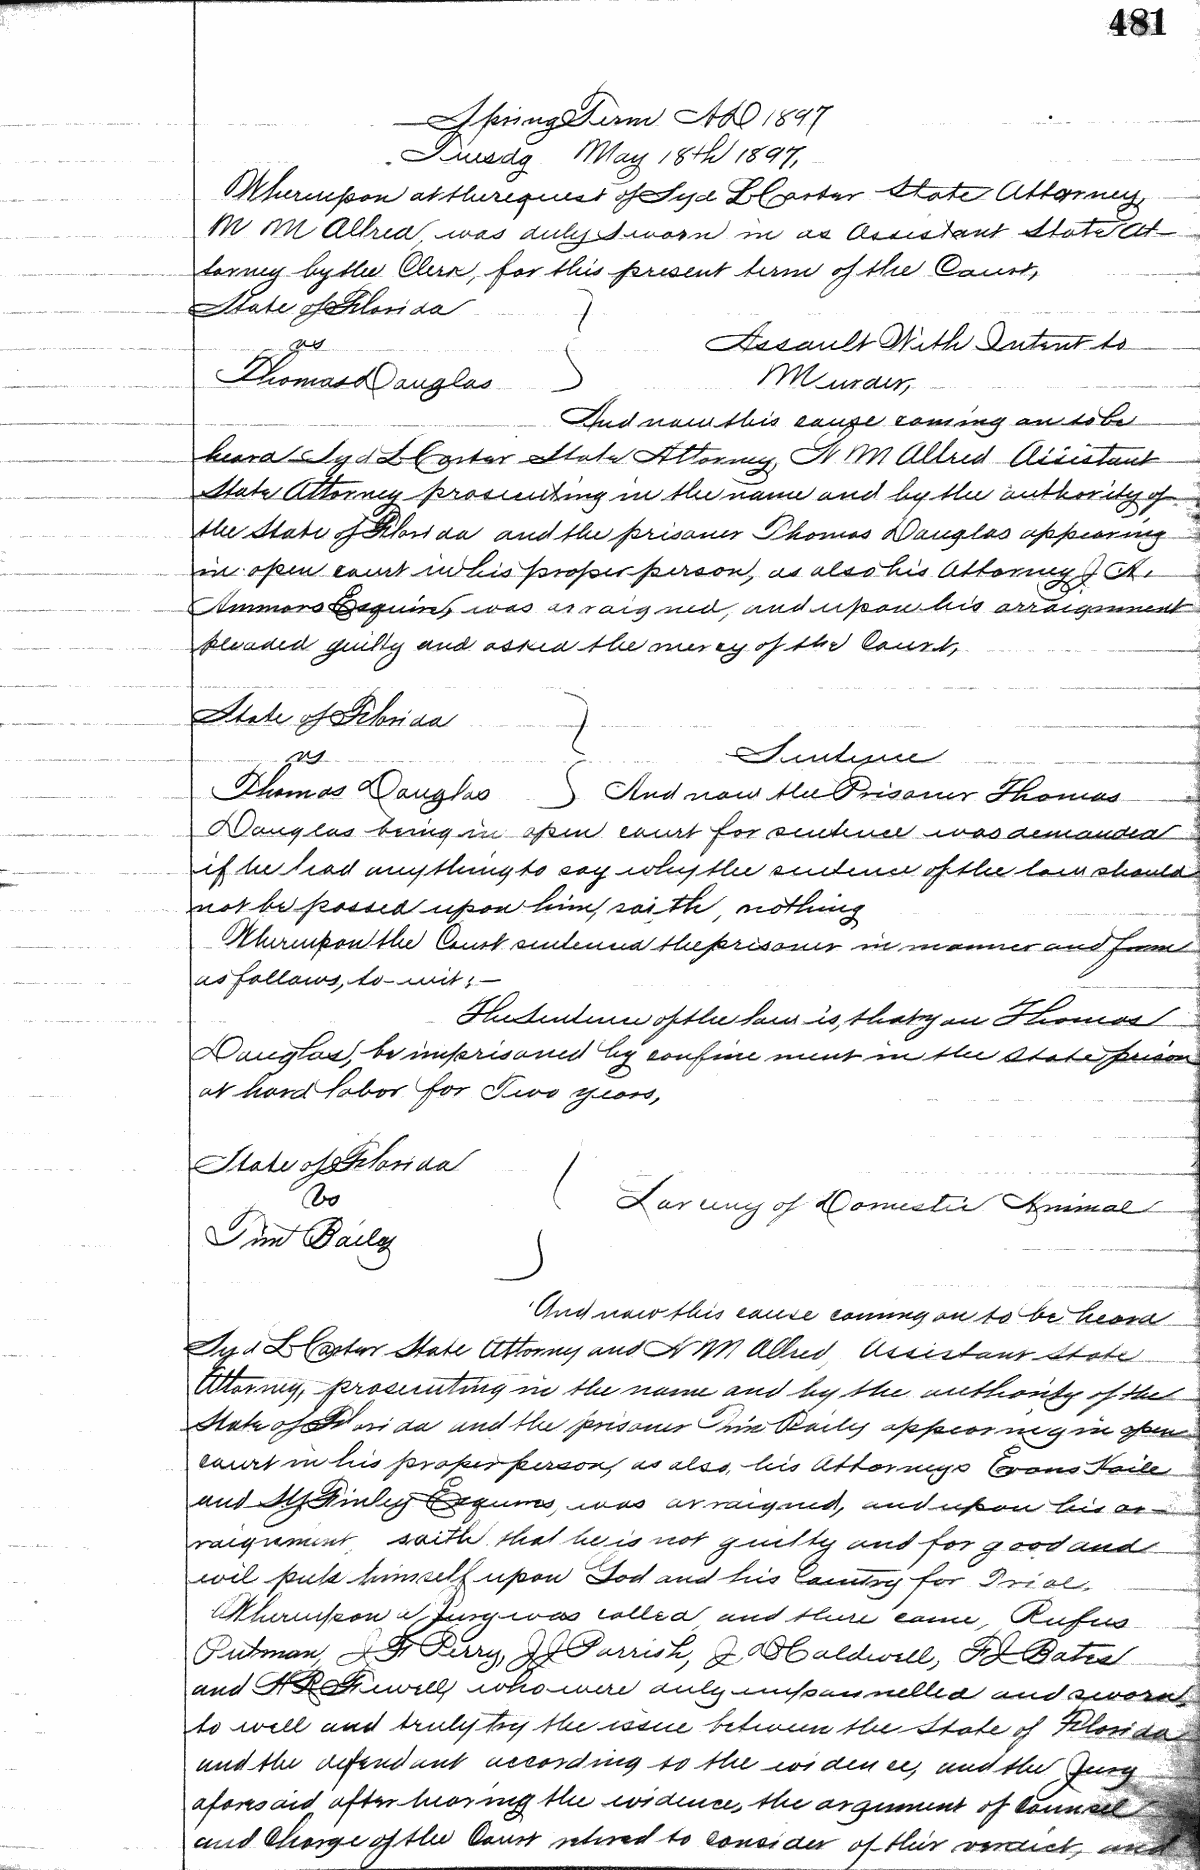 481
Spring Term AD 1897
Tuesdy May 18th 1897,
Whereupon at the request of Syd L Carter State Attorney,
M M Allred, was duly sworn in as Assistant State At-
torney by the Clerk, for this present term of the Court,
State of Florida
vs
Assault With Intent to
Thomas Douglas
Murder,
And now this cause coming on to be
heard Syd L Carter State Attorney, N M Allred Assistant
State Attorney prosecuting in the name and by the authority of
the State of Florida and the prisoner Thomas Douglas appearing
in open court in his proper person, as also his Attorney J A.
Ammons Esquire, was arraigned, and upon his arraignment
pleaded guilty and asked the mercy of the Court,
State of Florida
vs
Sentence
Thomas Douglas And now the Prisoner Thomas
Douglas being in open court for sentence was demanded
if he had anything to say why the sentence of the law should
not be passed upon him, saith, nothing
Whereupon the Court sentenced the prisoner in manner and form
as follows, to-wit:-
The Sentence of the law is, that you Thomas
Douglas, be imprisoned by confine ment in the State prison
at hard labor for Two years,
State of Florida
Vs
Larceny of Domestic Animal
Tim Baily
And now this cause coming on to be heard
Syd L Carter State Attorney and N M Allred, Assistant State
Attorney, prosecuting in the name and by the authority of the
State of Florida and the prisoner Tim Baily appearing in open
court in his proper person, as also, his Attorneys Evans Haile
and Finley Esquires, was arraigned, and upon his ar-
raignment, saith that he is not guilty and for good and
wil puts himself upon God and his Country for Trial.
Whereupon a Jury was called, and there came, Rufus
Putman, J F Perry, J J Parrish, J D Caldwell, F J Bates
and Fewell, who were duly empannelled and sworn,
to well and truly try the issue between the State of Florida
and the defendant according to the evidence, and the Jury
aforesaid after hearing the evidence, the argument of Counsel
and Charge of the Court retired to consider of their verdict, and